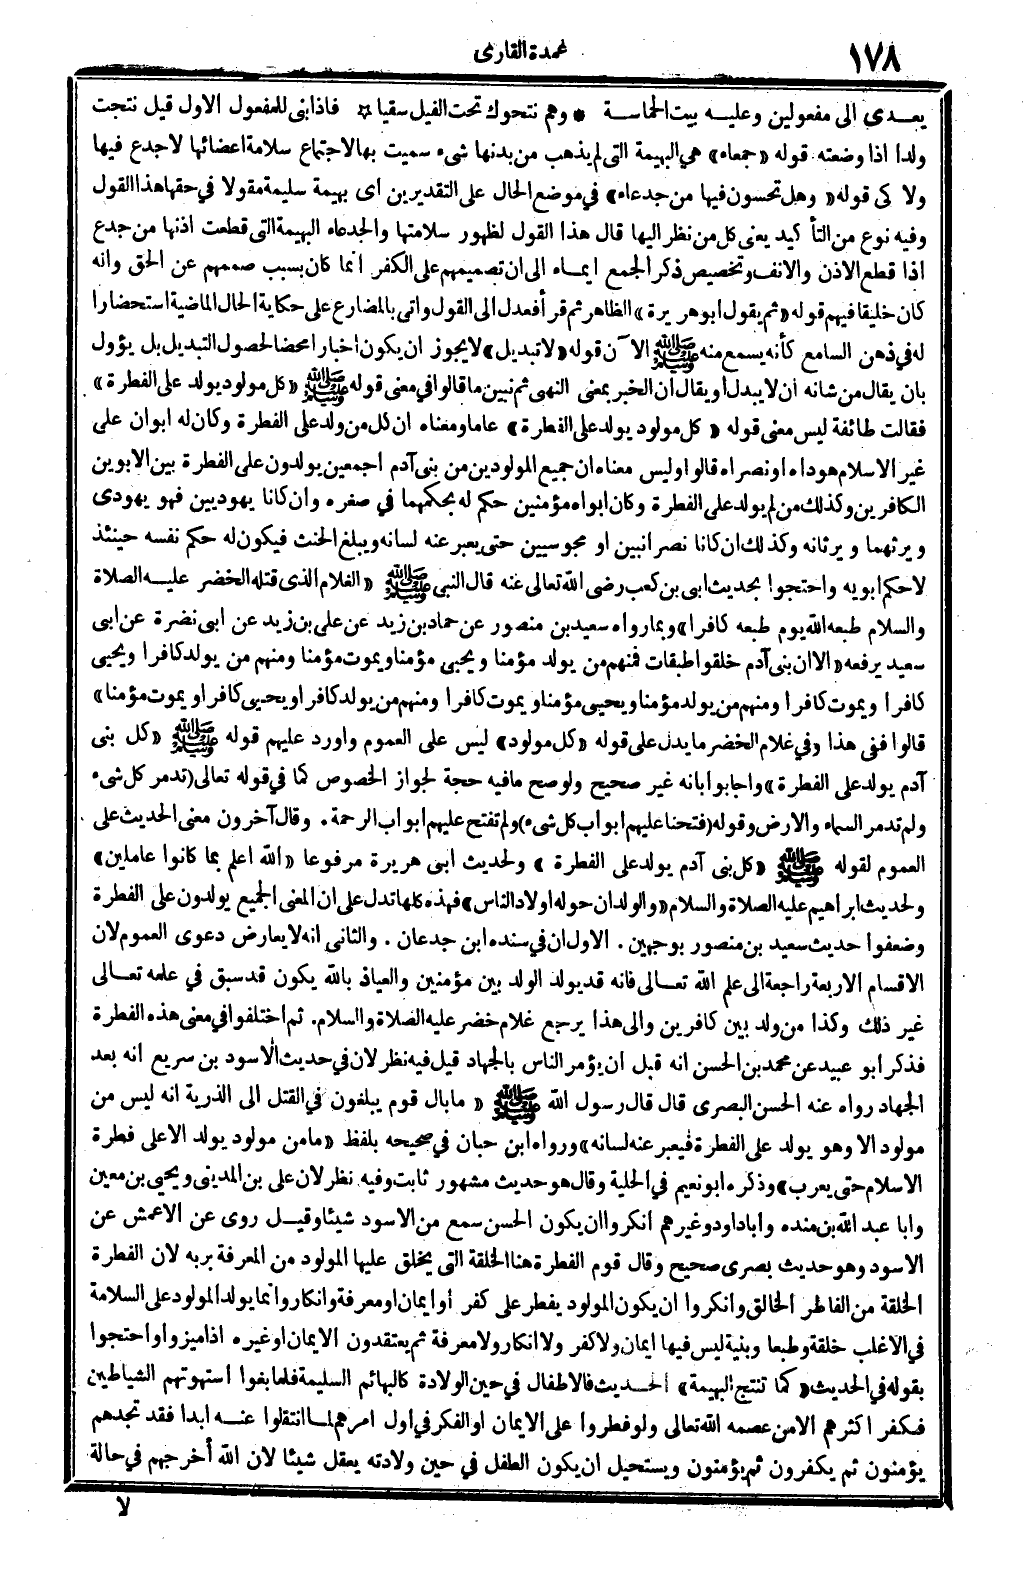 ١٧٨
عمدة القارى
يعدي الى مفعولين وعليه بيت الحماسة * وهم نتجوك تحت الفيل سقيا * فاذا بنى للمفعول الاول قيل نتجت
ولدا اذا وضعته قوله «جمعاء» هي البهيمة التى لم يذهب من بدنها شىء سميت بها لاجتماع سلامة اعضائها لا جدع فيها
ولا كى قوله «وهل تحسون فيها من جدعاء» في موضع الحال على التقديرين اى بهيمة سليمة مقولا في حقها هذا القول
وفيه نوع من التأكيد يعنى كل من نظر اليها قال هذا القول لظهور سلامتها والجدعاء البهيمة التى قطعت اذنها من جدع
اذا قطع الاذن والانف وتخصيص ذكر الجمع ايماء الى ان تصميمهم على الكفر انما كان بسبب صممهم عن الحق وانه
كان خليقا فيهم قوله «ثم يقول ابو هريرة» الظاهر ثم قرأ فعدل الى القول واتى بالمضارع على حكاية الحال الماضية استحضارا
له في ذهن السامع كأنه يسمع منه ﷺ الآن قوله «لا تبديل» لا يجوز ان يكون اخبارا محضا لحصول التبديل بل يؤول
بان يقال من شانه ان لا يبدل أو يقال ان الخبر بمعنى النهى ثم نبين ما قالوا في معنى قوله ﷺ «كل مولود يولد على الفطرة»
فقالت طائفة ليس معنى قوله «كل مولود يولد على الفطرة» عاما ومعناه ان كل من ولد على الفطرة وكان له ابوان على
غير الاسلام هوداه او نصراه قالوا وليس معناه ان جميع المولودين من بنى آدم اجمعين يولدون على الفطرة بين الابوين
الكافرين وكذلك من لم يولد على الفطرة وكان ابواه مؤمنين حكم له بحكمهما في صغره وان كانا يهوديين فهو يهودى
ويرثهما ويرثانه وكذلك ان كانا نصرانيين او مجوسيين حتى يعبر عنه لسانه ويبلغ الحنث فيكون له حكم نفسه حينئذ
لا حكم ابويه واحتجوا بحديث ابى بن كعب رضى الله تعالى عنه قال النبي ﷺ «الغلام الذى قتله الخضر عليه الصلاة
والسلام طبعه الله يوم طبعه كافرا» وبما رواه سعيد بن منصور عن حماد بن زيد عن على بن زيد عن ابى نضرة عن ابى
سعيد يرفعه «الا ان بنى آدم خلقوا طبقات فمنهم من يولد مؤمنا ويحيى مؤمنا ويموت مؤمنا ومنهم من يولد كافرا ويحيى
كافرا ويموت كافرا ومنهم من يولد مؤمنا ويحيى مؤمنا ويموت كافرا ومنهم من يولد كافرا ويحيى كافرا ويموت مؤمنا»
قالوا ففى هذا وفي غلام الخضر ما يدل على قوله «كل مولود» ليس على العموم واورد عليهم قوله ﷺ «كل بنى
آدم يولد على الفطرة» واجابوا بانه غير صحيح ولو صح ما فيه حجة لجواز الخصوص كما في قوله تعالى (تدمر كل شىء
ولم تدمر السماء والارض وقوله (فتحنا عليهم ابواب كل شىء) ولم تفتح عليهم ابواب الرحمة. وقال آخرون معنى الحديث على
العموم لقوله ﷺ «كل بنى آدم يولد على الفطرة» ولحديث ابى هريرة مرفوعا «الله اعلم بما كانوا عاملين»
ولحديث ابراهيم عليه الصلاة والسلام «والولدان حوله اولاد الناس» فهذه كلها تدل على ان المعنى الجميع يولدون على الفطرة
وضعفوا حديث سعيد بن منصور بوجهين. الاول ان في سنده ابن جدعان. والثانى انه لا يعارض دعوى العموم لان
الاقسام الاربعة راجعة الى علم الله تعالى فانه قد يولد الولد بين مؤمنين والعياذ بالله يكون قد سبق في علمه تعالى
غير ذلك وكذا من ولد بين كافرين والى هذا يرجع غلام خضر عليه الصلاة والسلام. ثم اختلفوا في معنى هذه الفطرة
فذكر ابو عبيد عن محمد بن الحسن انه قبل ان يؤمر الناس بالجهاد قيل فيه نظر لان في حديث الاسود بن سريع انه بعد
الجهاد رواه عنه الحسن البصرى قال قال رسول الله ﷺ «ما بال قوم يبلغون في القتل الى الذرية انه ليس من
مولود الا وهو يولد على الفطرة فيعبر عنه لسانه» ورواه ابن حبان في صحيحه بلفظ «ما من مولود يولد الا على فطرة
الاسلام حتى يعرب» وذكره ابو نعيم في الحلية وقال هو حديث مشهور ثابت وفيه نظر لان على بن المدينى ويحيى بن معين
وابا عبد الله بن منده وابا داود وغيرهم انكروا ان يكون الحسن سمع من الاسود شيئا وقيل روى عن الاعمش عن
الاسود وهو حديث بصرى صحيح وقال قوم الفطرة هنا الخلقة التى يخلق عليها المولود من المعرفة بربه لان الفطرة
الخلقة من الفاطر الخالق وانكروا ان يكون المولود يفطر على كفر أو ايمان او معرفة وانكار وانما يولد المولود على السلامة
في الاغلب خلقة وطبعا وبنية ليس فيها ايمان ولا كفر ولا انكار ولا معرفة ثم يعتقدون الايمان او غيره اذا ميزوا واحتجوا
بقوله في الحديث «كما تنتج البهيمة» الحديث فالاطفال في حين الولادة كالبهائم السليمة فلما بلغوا استهوتهم الشياطين
فكفر اكثرهم الا من عصمه الله تعالى ولو فطروا على الايمان او الكفر في اول امرهم لما انتقلوا عنه ابدا فقد تجدهم
يؤمنون ثم يكفرون ثم يؤمنون ويستحيل ان يكون الطفل في حين ولادته يعقل شيئا لان الله أخرجهم في حالة
لا